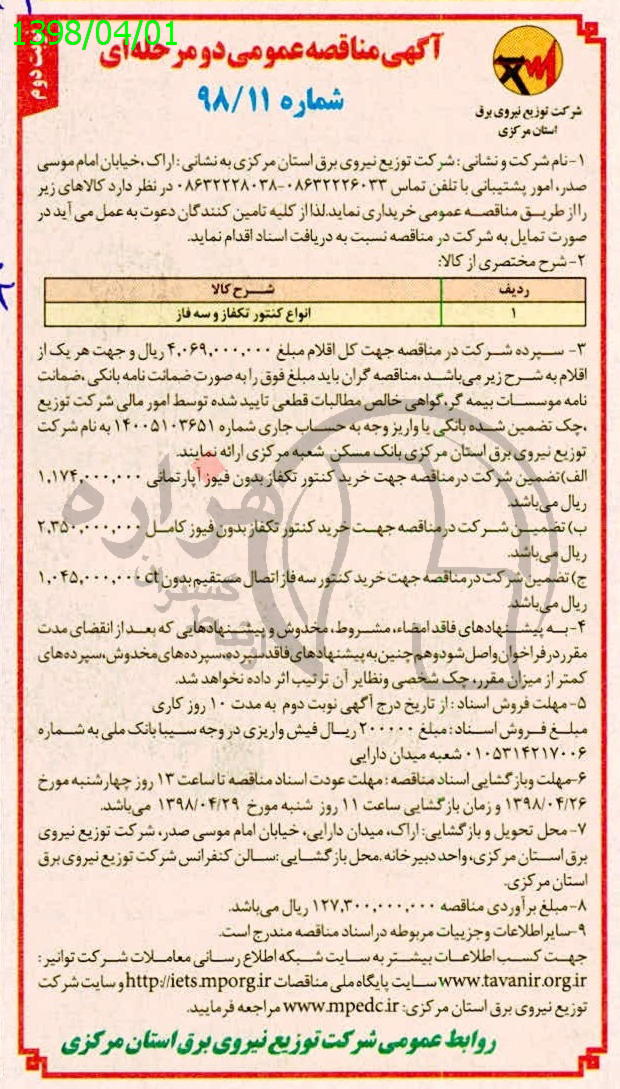 1398/04/01
نوبت دوم
آگهی مناقصه عمومی دو مرحله‌ای
شماره ۹۸/۱۱
شرکت توزیع نیروی برق
استان مرکزی
۱-نام شرکت و نشانی: شرکت توزیع نیروی برق استان مرکزی به نشانی: اراک، خیابان امام موسی
صدر، امور پشتیبانی با تلفن تماس ۰۸۶۳۲۲۲۶۰۳۳-۰۸۶۳۲۲۲۸۰۳۸ در نظر دارد کالاهای زیر
را از طریق مناقصه عمومی خریداری نماید. لذا از کلیه تامین کنندگان دعوت به عمل می آید در
صورت تمایل به شرکت در مناقصه نسبت به دریافت اسناد اقدام نماید.
۲-شرح مختصری از کالا:
ردیف شرح کالا
۱ انواع کنتور تکفاز و سه فاز
۳- سپرده شرکت در مناقصه جهت کل اقلام مبلغ ۴,۰۶۹,۰۰۰,۰۰۰ ریال و جهت هر یک از
اقلام به شرح زیر می‌باشد، مناقصه گران باید مبلغ فوق را به صورت ضمانت نامه بانکی، ضمانت
نامه موسسات بیمه گر، گواهی خالص مطالبات قطعی تایید شده توسط امور مالی شرکت توزیع
،چک تضمین شده بانکی یا واریز وجه به حساب جاری شماره ۱۴۰۰۵۱۰۳۶۵۱ به نام شرکت
توزیع نیروی برق استان مرکزی بانک مسکن شعبه مرکزی ارائه نمایند.
الف) تضمین شرکت در مناقصه جهت خرید کنتور تکفاز بدون فیوز آپارتمانی ۱,۱۷۴,۰۰۰,۰۰۰
ریال می‌باشد.
ب) تضمین شرکت در مناقصه جهت خرید کنتور تکفاز بدون فیوز کامل ۲,۳۵۰,۰۰۰,۰۰۰
ریال می‌باشد.
ج) تضمین شرکت در مناقصه جهت خرید کنتور سه فاز اتصال مستقیم بدون ct ۱,۰۴۵,۰۰۰,۰۰۰
ریال می‌باشد.
۴- به پیشنهادهای فاقد امضاء، مشروط، مخدوش و پیشنهادهایی که بعد از انقضای مدت
مقرر در فراخوان واصل شود و هم چنین به پیشنهادهای فاقد سپرده، سپرده‌های مخدوش، سپرده‌های
کمتر از میزان مقرر، چک شخصی و نظایر آن ترتیب اثر داده نخواهد شد.
۵- مهلت فروش اسناد: از تاریخ درج آگهی نوبت دوم به مدت ۱۰ روز کاری
مبلغ فروش اسناد: مبلغ ۲۰۰۰۰۰ ریال فیش واریزی در وجه سیبا بانک ملی به شماره
۰۱۰۵۳۱۴۲۱۷۰۰۶ شعبه میدان دارایی
۶-مهلت و بازگشایی اسناد مناقصه: مهلت عودت اسناد مناقصه تا ساعت ۱۳ روز چهارشنبه مورخ
۱۳۹۸/۰۴/۲۶ و زمان بازگشایی ساعت ۱۱ روز شنبه مورخ ۱۳۹۸/۰۴/۲۹ می‌باشد.
۷- محل تحویل و بازگشایی: اراک، میدان دارایی، خیابان امام موسی صدر، شرکت توزیع نیروی
برق استان مرکزی، واحد دبیرخانه. محل بازگشایی: سالن کنفرانس شرکت توزیع نیروی برق
استان مرکزی.
۸- مبلغ برآوردی مناقصه ۱۲۷,۳۰۰,۰۰۰,۰۰۰ ریال می‌باشد.
۹-سایر اطلاعات و جزییات مربوطه در اسناد مناقصه مندرج است.
جهت کسب اطلاعات بیشتر به سایت شبکه اطلاع رسانی معاملات شرکت توانیر:
www.tavanir.org.ir سایت پایگاه ملی مناقصات http://iets.mporg.ir و سایت شرکت
توزیع نیروی برق استان مرکزی: www.mpedc.ir مراجعه فرمایید.
روابط عمومی شرکت توزیع نیروی برق استان مرکزی
هزاره